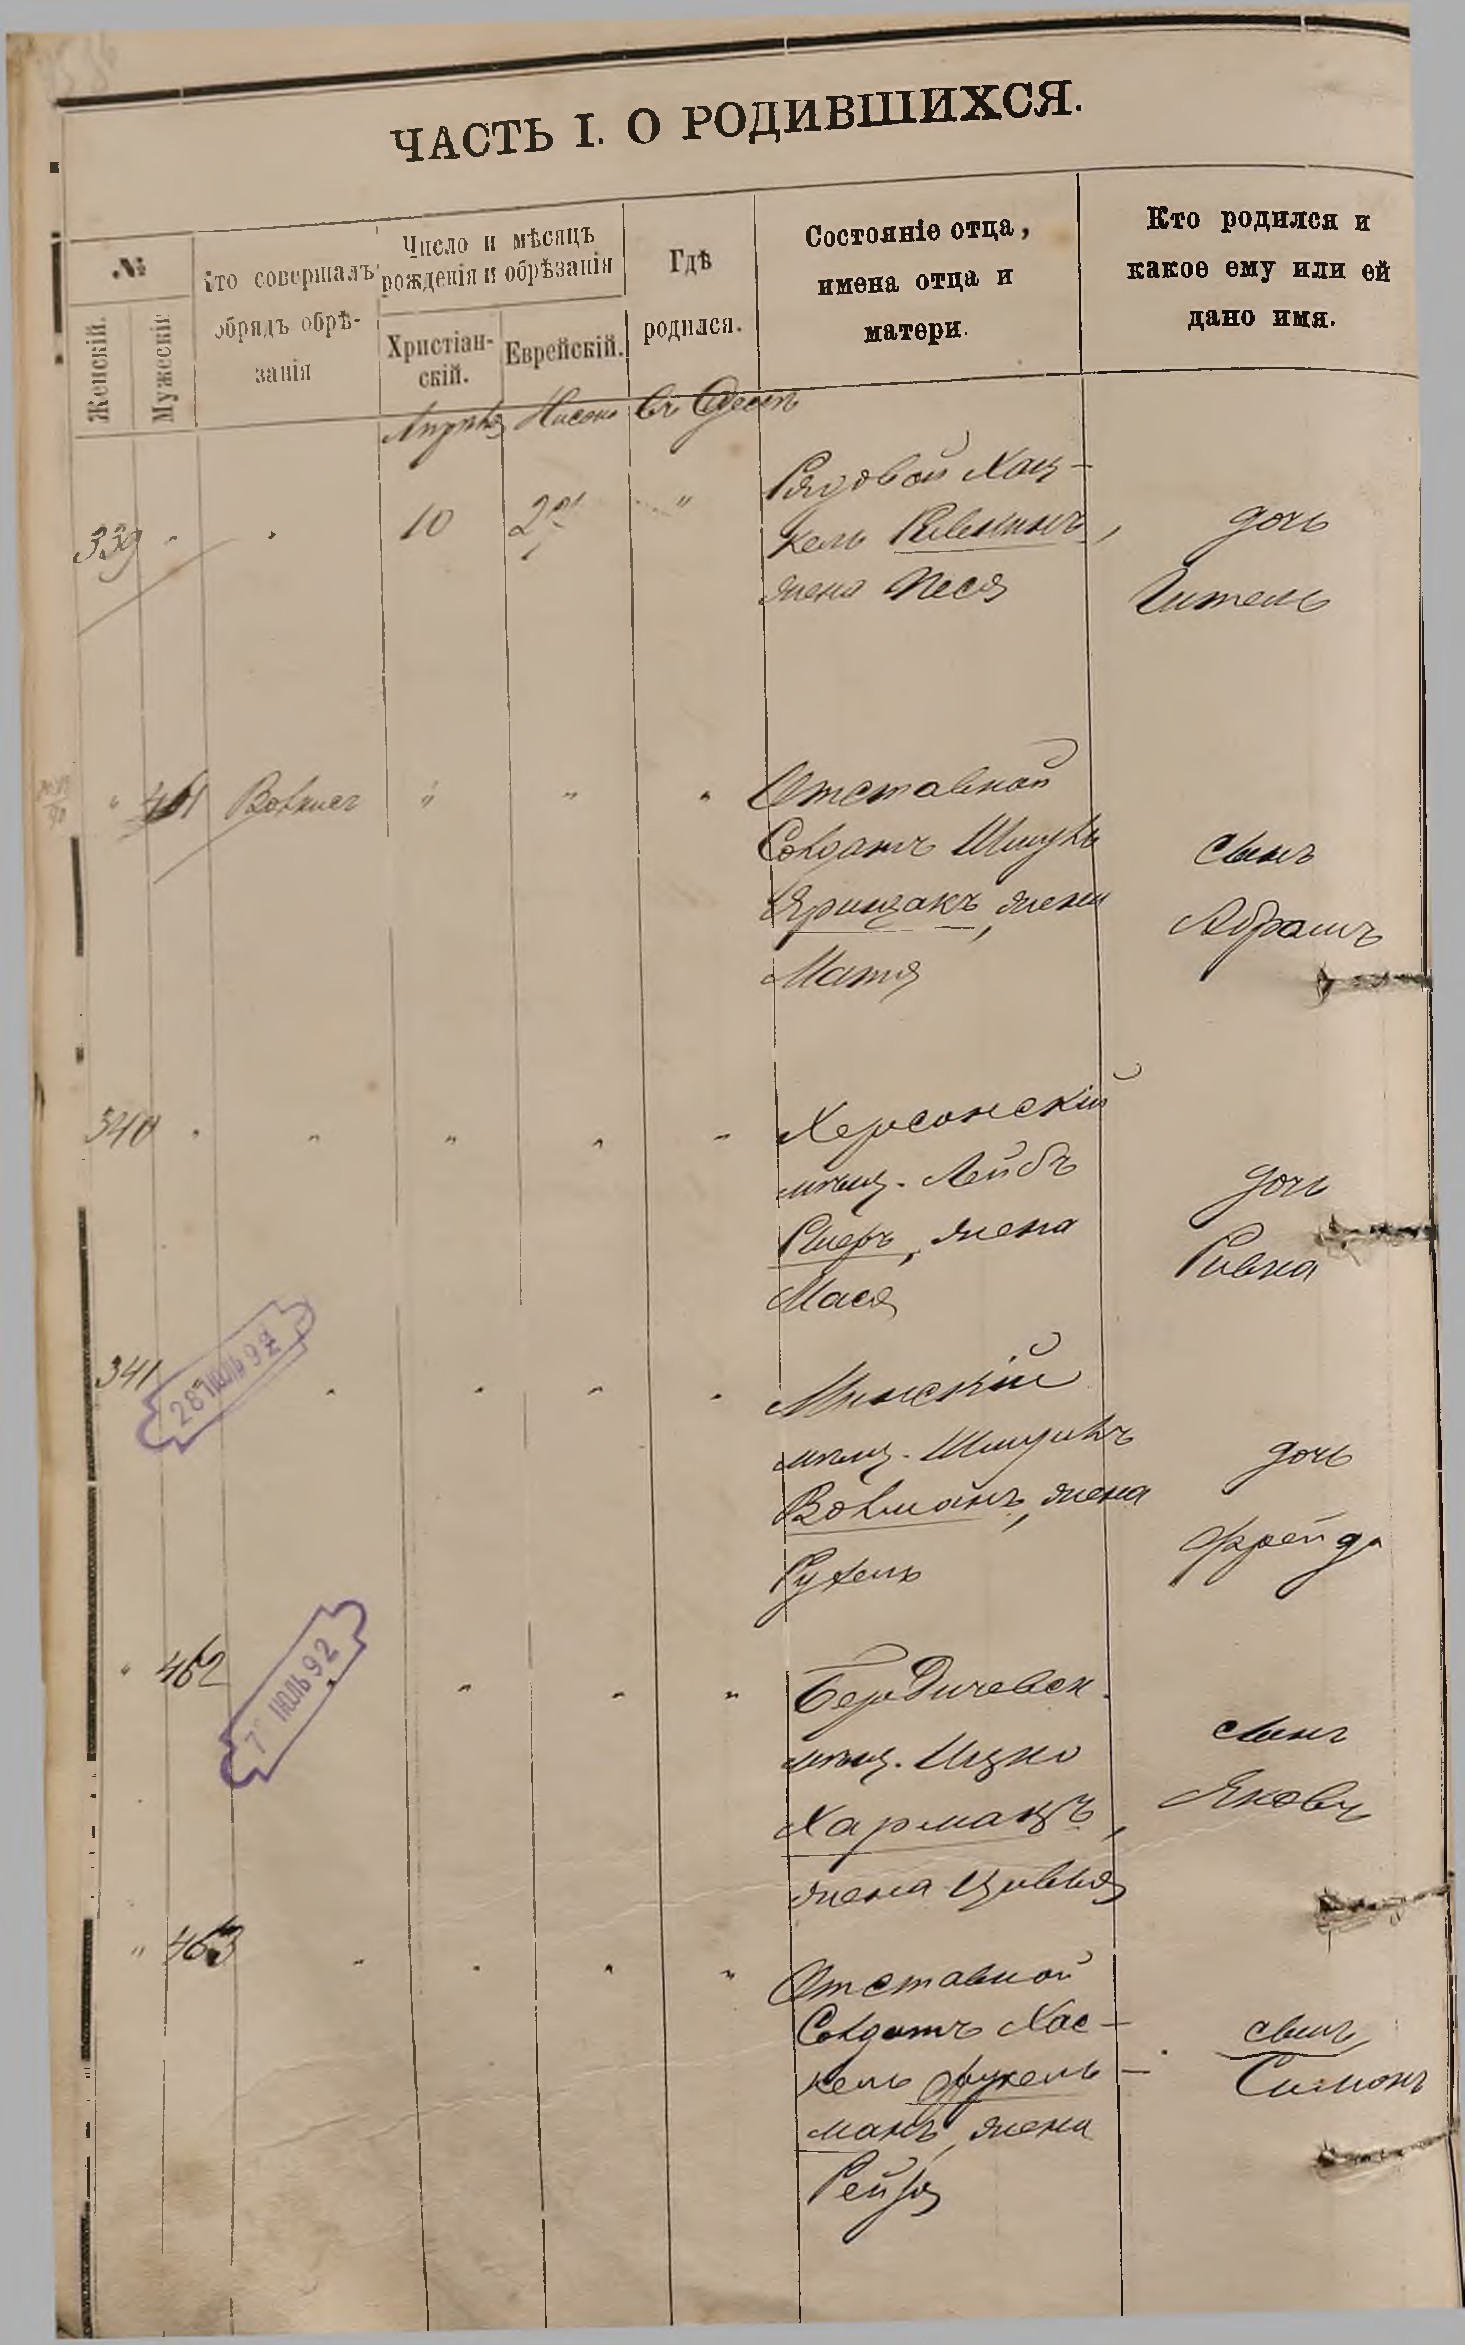 ЧАСТЬ I. О РОДИВШИХСЯ.
№
Женскій.
Мужескій
Кто совершалъ
обрядъ обрѣ-
занія
Число и мѣсяцъ
рожденія и обрѣзанія
Христіан-
скій.
Еврейскій.
Гдѣ
родился.
Состояніе отца,
имена отца и
матери.
Кто родился и
какое ему или ей
дано имя.
Апрѣль Нисонъ Въ Одессѣ
339 " " 10 "
Рядовой Хац-
кель Ривкинъ,
жена Песя
дочь
Гитель
" 461 " " "
Отставной
Солдатъ Шмуль
Ярищакъ, жена
Матя
сынъ
Абрамъ
340 " " " " "
Херсонскій
мѣщ. Лейбъ
жена
Мася
дочь
Ривка
341 " " " "
28 ІЮЛЬ 92
Минскій
мѣщ. Шмуикъ
Вольманъ, жена
Рухель
дочь
Фрейда
" 462 " " "
7 ІЮЛЬ 92
Бердичевск.
мѣщ. Ицко
Хармацъ,
жена Цивья
сынъ
Яковъ
" 463 " " " "
Отставной
Солдатъ Хас-
кель Фукель-
манъ, жена
Рейзя
сынъ
Симонъ